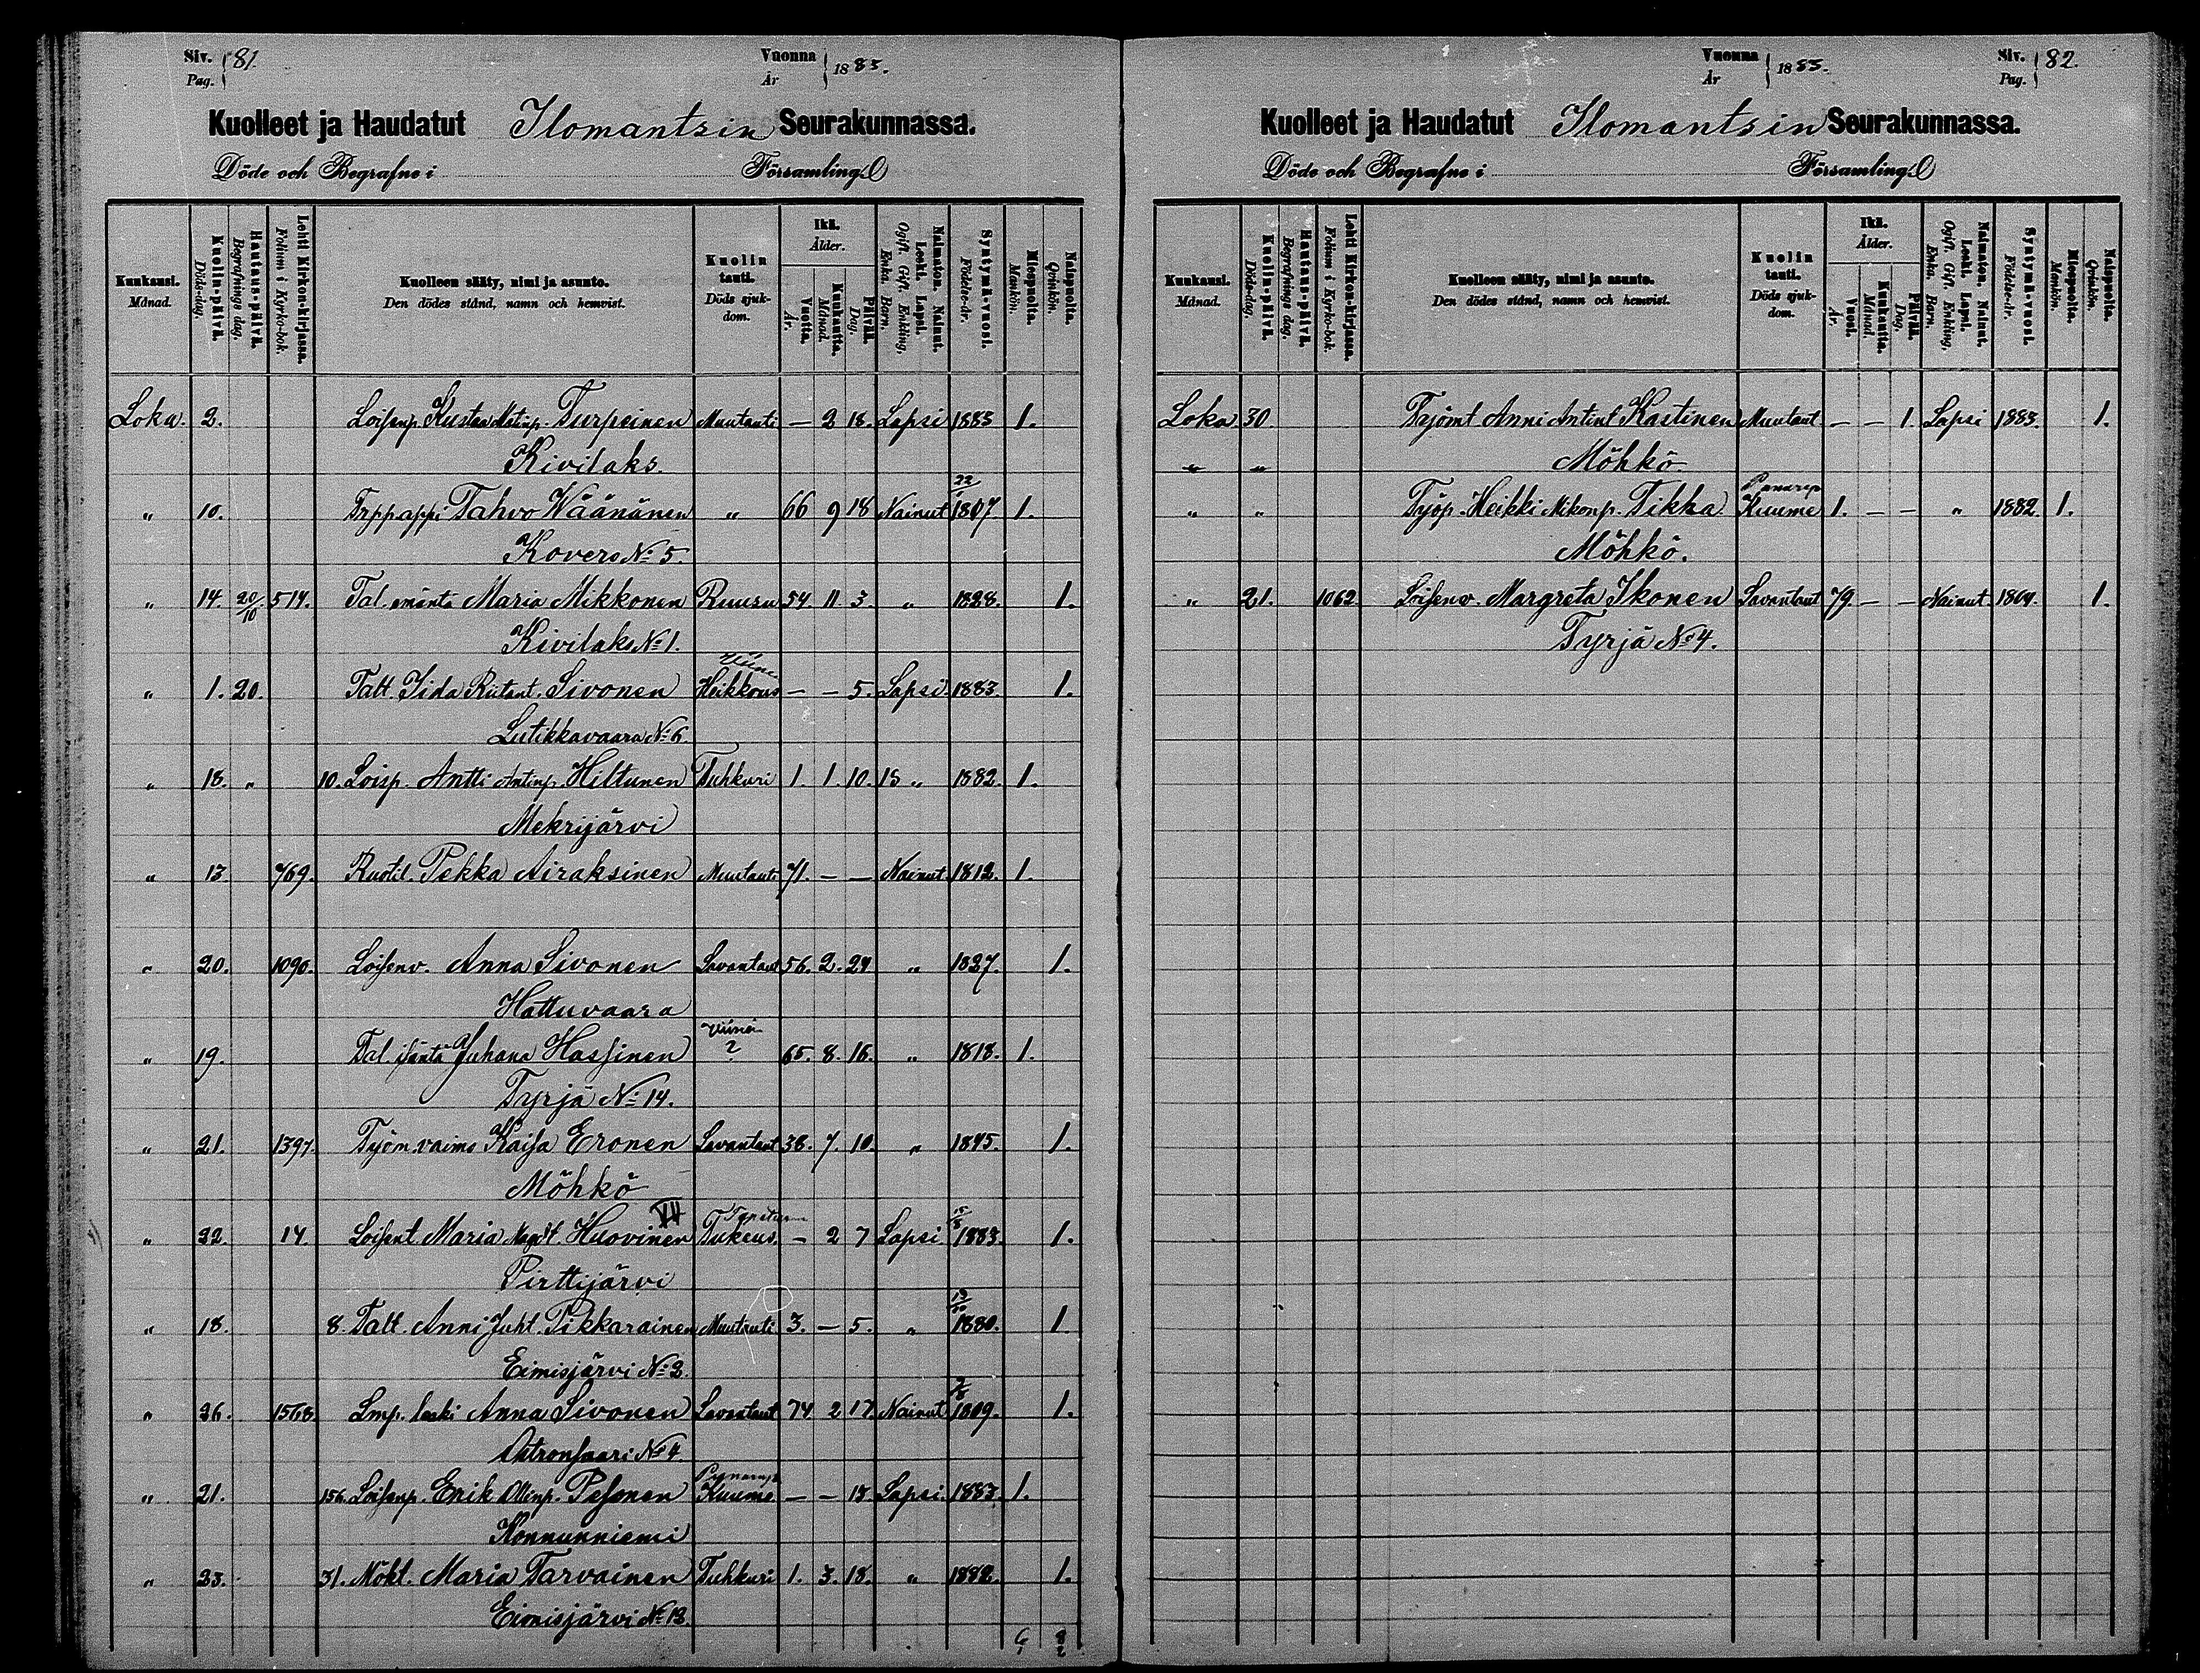 Siv. 81.
Pag.
Vuonna 1883.
År
Kuolleet ja Haudatut Ilomantsin Seurakunnassa.
Döde och Begrafne i Församling.
Kuukausi. Månad.
Kuolin-päivä. Döds-dag.
Hautaus-päivä. Begrafnings dag.
Lehti Kirkon-kirjassa. Folium i Kyrko-bok.
Kuolleen sääty, nimi ja asunto.
Den dödes stånd, namn och hemvist.
Kuolin tauti. Döds sjukdom.
Ikä. Ålder.
Vuotta. År.
Kuukautta. Månad.
Päivää. Dag.
Naimaton. Nainut. Leski. Lapsi.
Ogift. Gift. Enkling. Enka. Barn.
Syntymä-vuosi. Födelse-år.
Miespuolta. Mankön.
Naispuolta. Qvinkön.
Loka. 2. Loisenp. Kustaa Matinp. Turpeinen Muutauti — 2 18. Lapsi 1883 1.
Kivilaks.
" 10. Tahvo Wäänänen " 66 9 18 Nainut 22/1 1807 1.
Kovero No 5.
" 14. 20/10 514. Tal. emäntä Maria Mikkonen Ruusu 54 11 3. " 1828. 1.
Kivilaks No 1.
" 1. 20. Talt. Iida Ristant. Sivonen Heikkous — — 5. Lapsi. 1883. 1.
Lutikkavaara No 6.
" 18. " 10. Loisp. Antti Antinp. Hiltunen Tuhkuri 1. 1. 10. " 1882. 1.
Mekrijärvi
" 13 769. Ruotil. Pekka Airaksinen Muutauti 71. — — Nainut 1812. 1.
" 20. 1090. Loisenv. Anna Sivonen Lavantaut 56. 2. 24 " 1827. 1.
Hattuvaara
" 19. Tal. isäntä Juhana Hassinen Viina ? 65. 8. 16. " 1818. 1.
Tyrjä No 14.
" 21. 1397. Työm. vaimo Kaisa Eronen Lavantaut 38. 7. 10. " 1845. 1.
Möhkö
" 22. 14. Loisent. Maria Huovinen VII Tukeus. — 2 7 Lapsi 15/8 1883. 1.
Pirttijärvi
" 18. 8. Talt. Anni Juht. Pikkarainen Muutauti 3. — 5. " 13/10 1880. 1.
Eimisjärvi No 2.
" 26. 1568. Lmp. leski Anna Sivonen Lavantaut 74 2 17. Nainut 1809. 1.
Putronsaari No 4.
" 21. 156. Loisenp. Erik Ollinp. Pesonen Kuume — — 13. Lapsi. 1883. 1.
Konnunniemi
" 23. 31. Mökt. Maria Tarvainen Tuhkuri 1. 3. 18. " 1882. 1.
Eimisjärvi No 12.
6 8
Siv. 82.
Pag.
Vuonna 1883.
År
Kuolleet ja Haudatut Ilomantsin Seurakunnassa.
Döde och Begrafne i Församling.
Kuukausi. Månad.
Kuolin-päivä. Döds-dag.
Hautaus-päivä. Begrafnings dag.
Lehti Kirkon-kirjassa. Folium i Kyrko-bok.
Kuolleen sääty, nimi ja asunto.
Den dödes stånd, namn och hemvist.
Kuolin tauti. Döds sjuk-dom.
Ikä. Ålder.
Vuosi. År.
Kuukautta. Månad.
Päivää. Dag.
Naimaton. Nainut. Leski. Lapsi.
Ogift. Gift. Enkling. Enka. Barn.
Syntymä-vuosi. Födelse-år.
Miespuolta. Mankön.
Naispuolta. Qvinkön.
Loka 30 Työmt Anni Antint Kastinen Muutaut. — — 1. Lapsi 1883. 1.
" " Möhkö
" " Työp. Heikki Mikonp. Tikka Kuume 1. — — " 1882. 1.
Möhkö.
" 21. 1062 Loisenv. Margreta Ikonen Lavantaut 79 — — Nainut 1804. 1.
Tyrjä No 4.